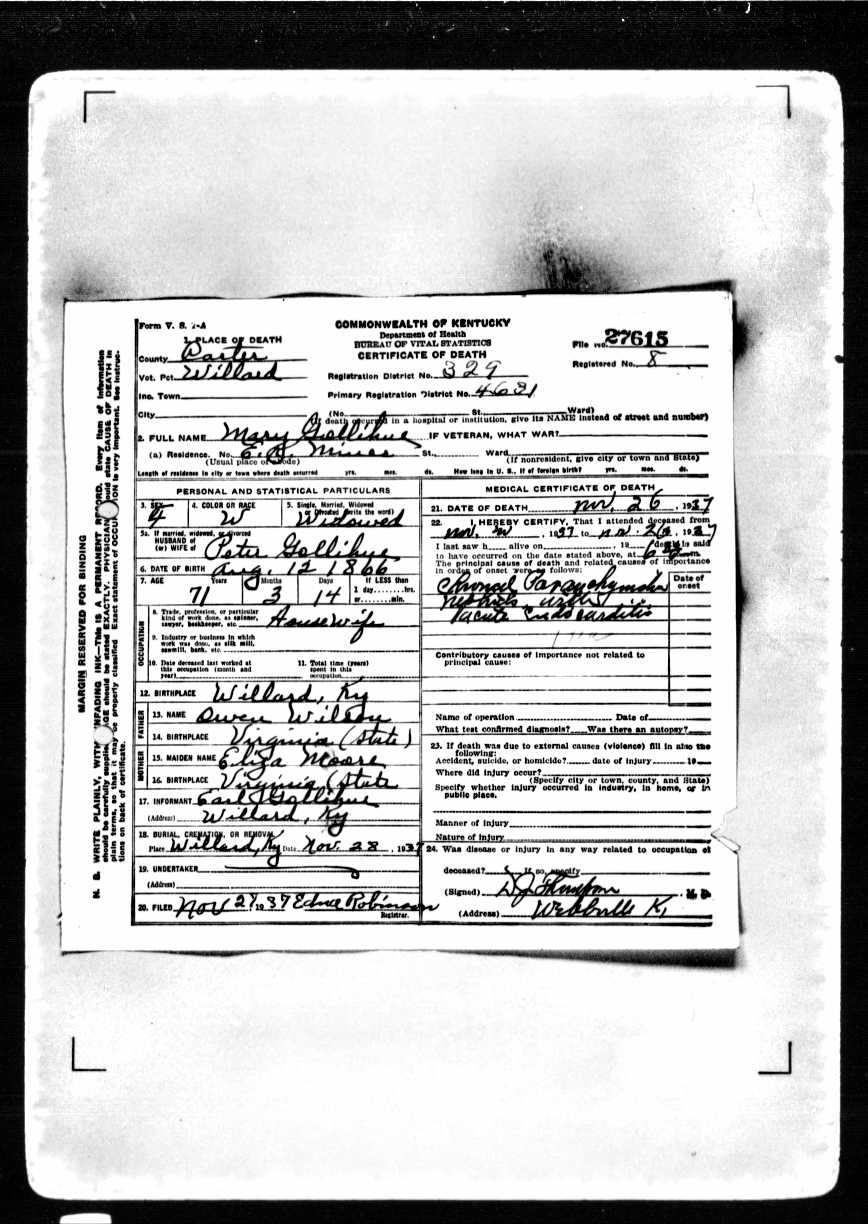 Form V. S. 1-A
COMMONWEALTH OF KENTUCKY
Department of Health
BUREAU OF VITAL STATISTICS
CERTIFICATE OF DEATH
File No. 27615
Registered No. 8
1. PLACE OF DEATH
County Carter
Vot. Pct. Willard
Registration District No. 329
Inc. Town
Primary Registration District No. 4681
City (No. St. Ward)
(If death occurred in a hospital or institution, give its NAME instead of street and number)
2. FULL NAME Mary Gollihue IF VETERAN, WHAT WAR?
(a) Residence. No. E.K. Mines St., Ward
(Usual place of abode) (If nonresident, give city or town and State)
Length of residence in city or town where death occurred yrs. mos. ds. How long in U. S., if of foreign birth? yrs. mos. ds.
PERSONAL AND STATISTICAL PARTICULARS
3. SEX 4. COLOR OR RACE 5. Single, Married, Widowed
or Divorced (write the word)
W Widowed
5a. If married, widowed, or divorced
HUSBAND of
(or) WIFE of Peter Gollihue
6. DATE OF BIRTH Aug. 12 1866
7. AGE Years Months Days If LESS than
71 3 14 1 day hrs.
or min.
OCCUPATION
8. Trade, profession, or particular
kind of work done, as spinner,
sawyer, bookkeeper, etc. Housewife
9. Industry or business in which
work was done, as silk mill,
sawmill, bank, etc.
10. Date deceased last worked at
this occupation (month and
year)
11. Total time (years)
spent in this
occupation
12. BIRTHPLACE Willard, Ky
FATHER
13. NAME Owen Wilson
14. BIRTHPLACE Virginia (State)
MOTHER
15. MAIDEN NAME Eliza Moore
16. BIRTHPLACE Virginia (State
17. INFORMANT Earl Gollihue
(Address) Willard, Ky
18. BURIAL, CREMATION, OR REMOVAL
Place Willard, Ky Date Nov. 28, 1937
19. UNDERTAKER
(Address)
20. FILED Nov 27, 1937 Edna Robinson
Registrar.
MEDICAL CERTIFICATE OF DEATH
21. DATE OF DEATH Nov. 26, 1937
22. I HEREBY CERTIFY, That I attended deceased from
Nov. , 1937 to Nov. 26, 1937
I last saw h alive on 19 death is said
to have occurred on the date stated above, at m.
The principal cause of death and related causes of importance
in order of onset were as follows:
Date of
onset
Chronic Paranchymota
Nephritis with
acute Endocarditis
Contributory causes of importance not related to
principal cause:
Name of operation Date of
What test confirmed diagnosis? Was there an autopsy?
23. If death was due to external causes (violence) fill in also the
following:
Accident, suicide, or homicide? date of injury 19
Where did injury occur?
(Specify city or town, county, and State)
Specify whether injury occurred in industry, in home, or in
public place.
Manner of injury
Nature of injury
24. Was disease or injury in any way related to occupation of
deceased? If so, specify
(Signed) D J Thompson, M. D.
(Address) Webbville Ky
MARGIN RESERVED FOR BINDING
N. B. WRITE PLAINLY, WITH UNFADING INK—THIS IS A PERMANENT RECORD. Every item of information
should be carefully supplied. AGE should be stated EXACTLY. PHYSICIANS should state CAUSE OF DEATH in
plain terms, so that it may be properly classified. Exact statement of OCCUPATION is very important. See instruc-
tions on back of certificate.